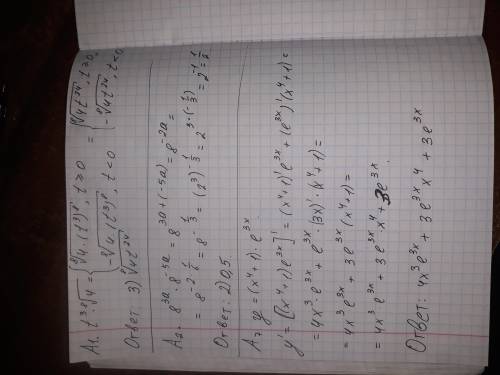 A1. t³·⁸√4 = { ⁸√(4·(t³)⁸), t ≥ 0 ; -⁸√(4·(t³)⁸), t < 0 = { ⁸√(4t²⁴), t ≥ 0, ; -⁸√(4t²⁴), t < 0
Ответ: 3) ⁸√(4t²⁴)
A2. 8^(3a) · 8^(-5a) = 8^(3a+(-5a)) = 8^(-2a) =
= 8^(-2·1/6) = 8^(-1/3) = (2³)^(-1/3) = 2^(3·(-1/3)) = 2^(-1) = 1/2
Ответ: 2) 0,5.
A7 y = (x⁴+1)·e^(3x).
y' = [(x⁴+1)e^(3x)]' = (x⁴+1)'e^(3x) + (e^(3x))'(x⁴+1) =
= 4x³·e^(3x) + e^(3x)·(3x)'·(x⁴+1) =
= 4x³e^(3x) + 3e^(3x)(x⁴+1) =
= 4x³e^(3x) + 3e^(3x)·x⁴ + 3e^(3x)
Ответ: 4x³e^(3x) + 3e^(3x)x⁴ + 3e^(3x)